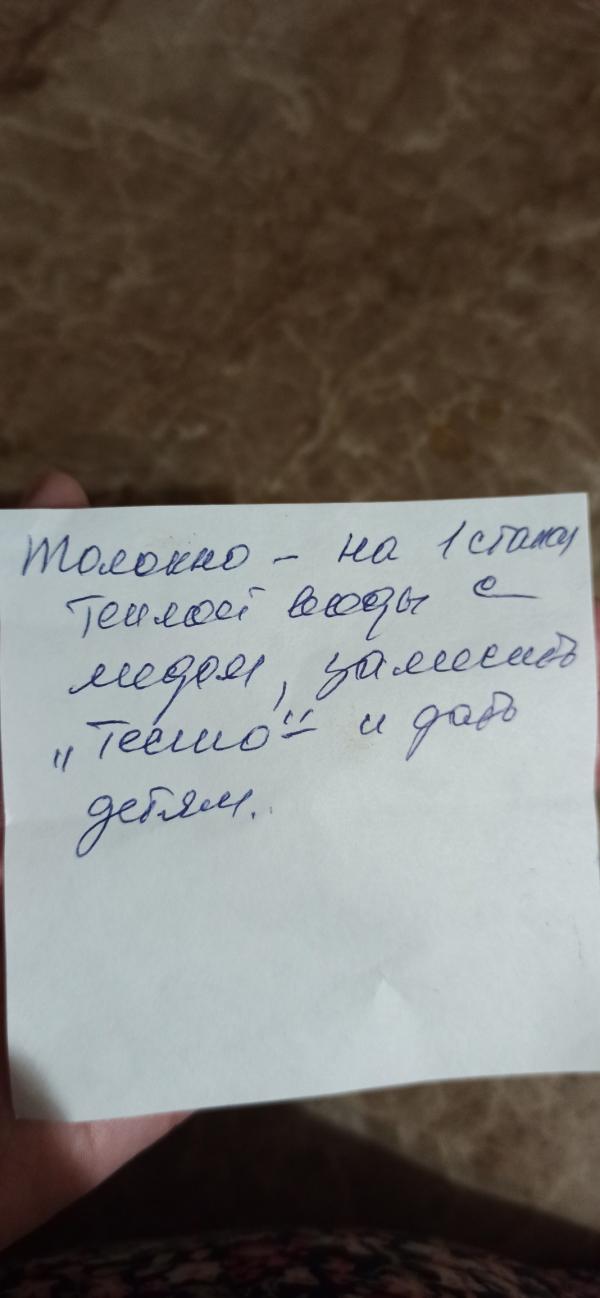 Толокно – на 1 стакан
теплой воды с
медом, замесить
"тесто" и дать
детям.